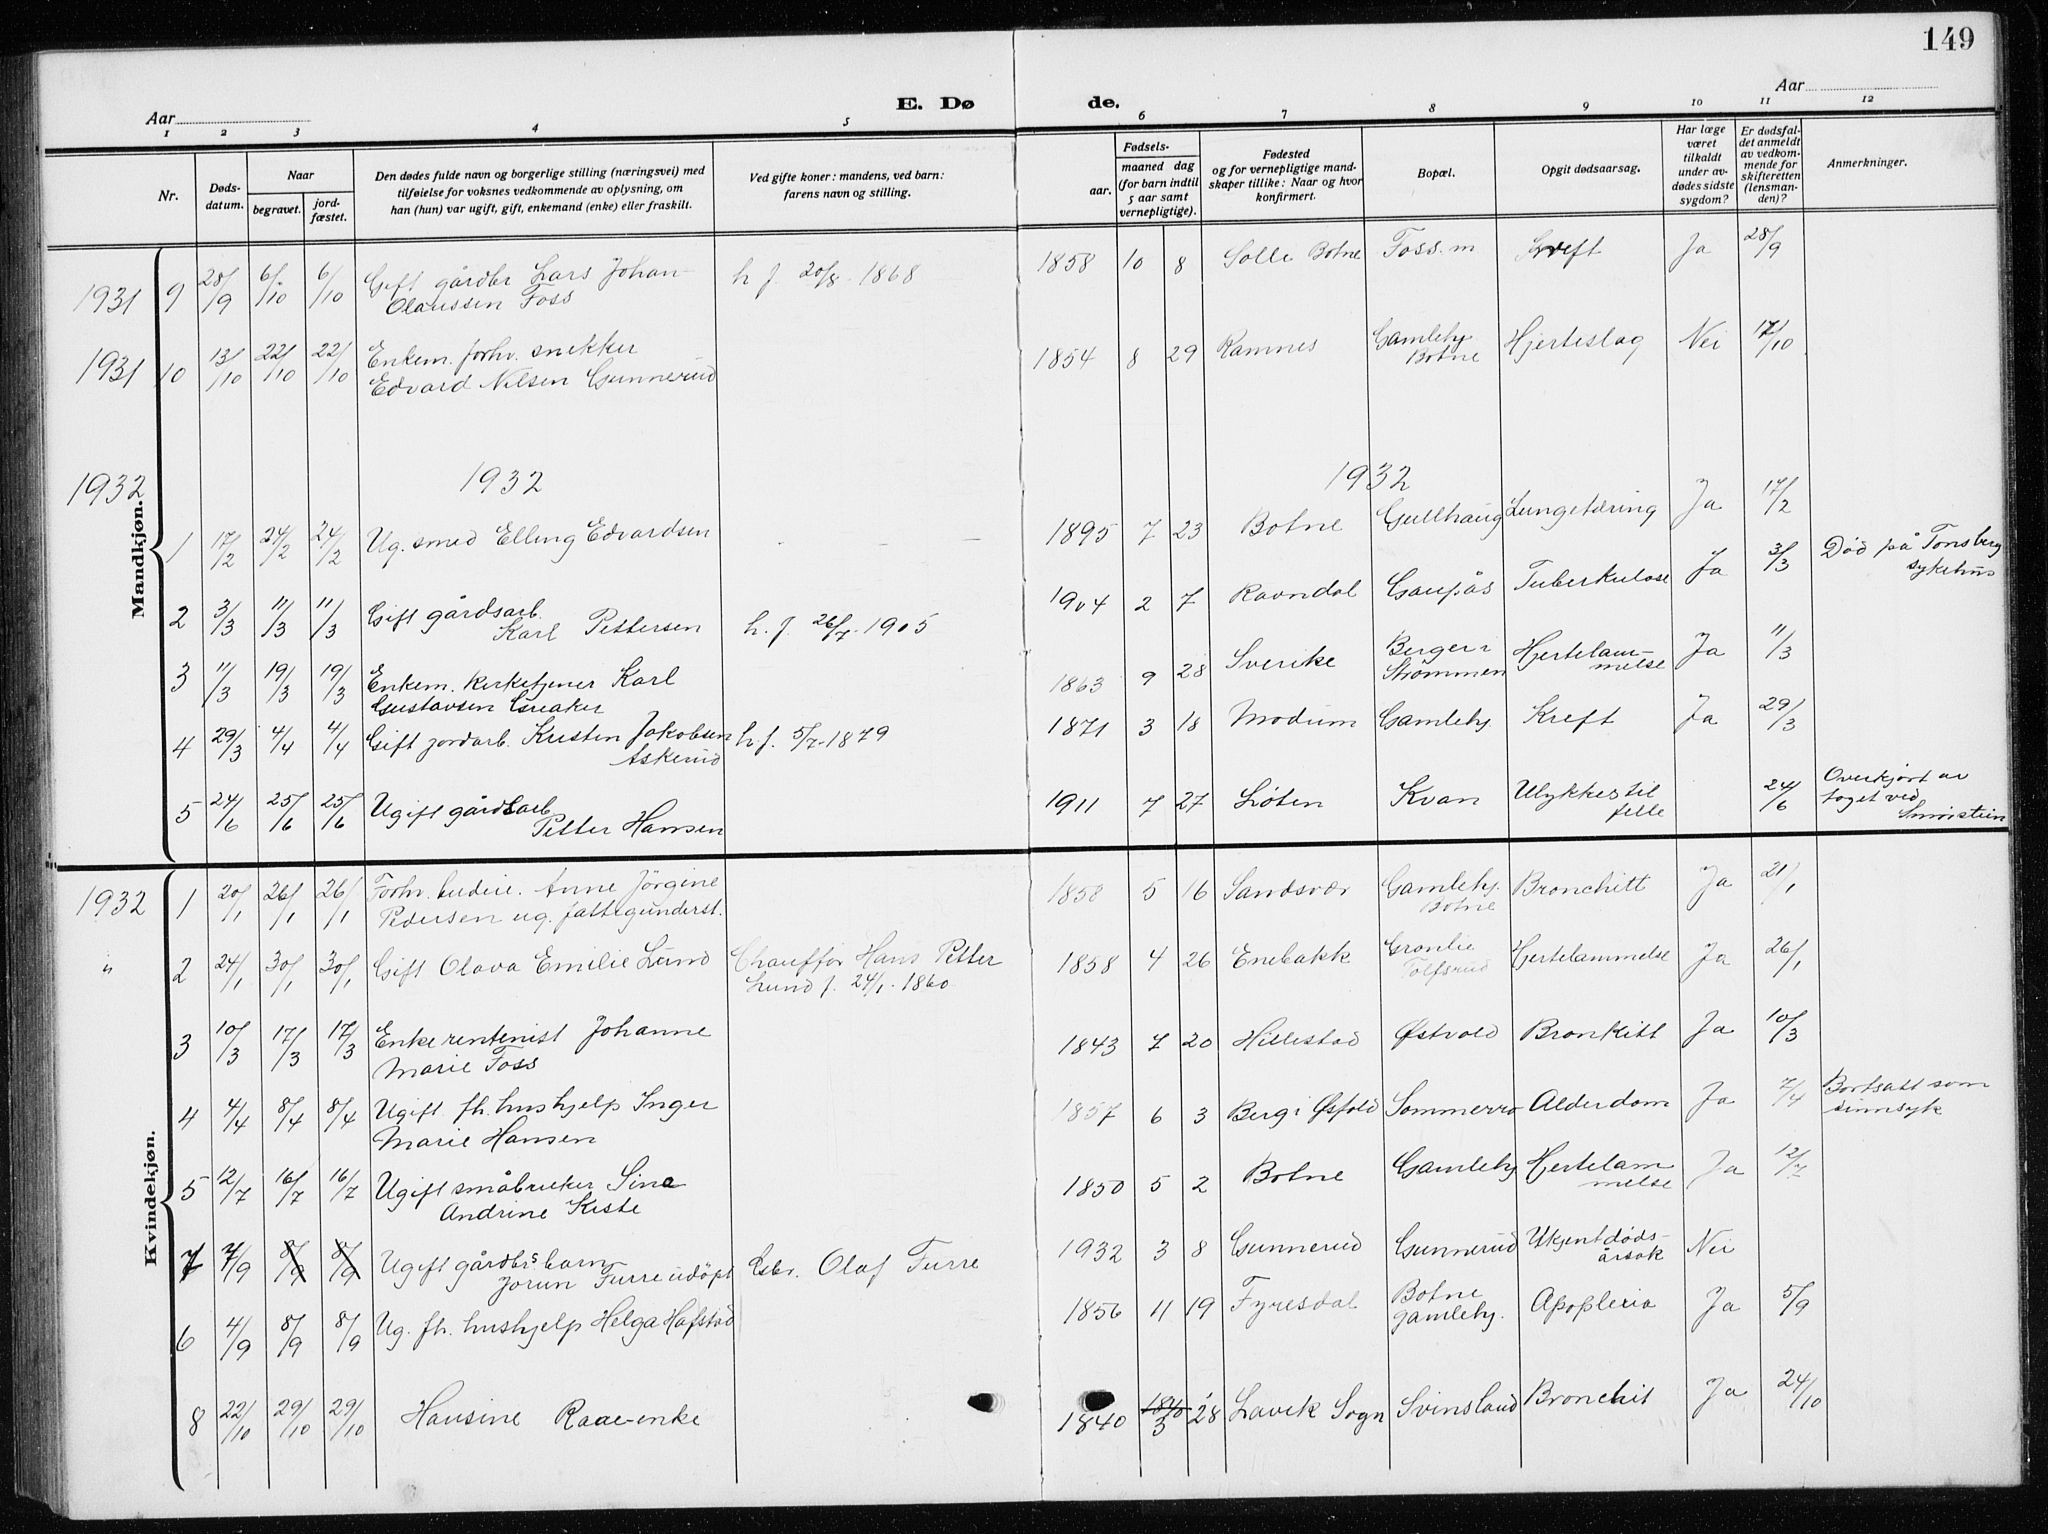 149
Aar
E. Dø
de.
Aar
1 2 3 4 5 6 7 8 9 10 11 12
Nr.
Døds-
datum.
Naar
begravet.
jord-
fæstet.
Den dødes fulde navn og borgerlige stilling (næringsvei) med
tilføielse for voksnes vedkommende av oplysning, om
han (hun) var ugift, gift, enkemand (enke) eller fraskilt.
Ved gifte koner: mandens, ved barn:
farens navn og stilling.
Fødsels-
aar.
maaned dag
(for barn indtil
5 aar samt
vernepligtige).
Fødested
og for vernepligtige mand-
skaper tillike: Naar og hvor
konfirmert.
Bopæl.
Opgit dødsaarsag.
Har læge
været
tilkaldt
under av-
dødes sidste
sygdom?
Er dødsfal-
det anmeldt
av vedkom-
mende for
skifteretten
(lensman-
den)?
Anmerkninger.
Mandkjøn.
1931 9 28/9 6/10 6/10 Gift gårdbr Lars Johan-
Olaussen Foss
h f. 20/8 - 1868 1858 10 8 Solli Botne Foss. m Kreft Ja 28/9
1931 10 13/10 22/10 22/10 Enkem. forhv. snekker
Edvard Nilsen Gunnerud
1854 8 29 Ramnes Gamleby
Botne
Hjerteslag Nei 17/10
1932 1932 1932
1 17/2 24/2 24/2 Ug. smed Elling Edvardsen - - - 1895 7 23 Botne Gullhaug Lungetæring Ja 17/2
2 3/3 11/3 11/3 Gift gårdsarb.
Karl Pettersen
h. f. 26/7 - 1905 1904 2 7 Ravndal Gaupås Tuberkulose Ja 3/3 Død på Tønsberg
sykehus
3 11/3 19/3 19/3 Enkem. kirketjener Karl
Gustavsen Greaker
1863 9 28 Sverike Berger i
Strømmen
Hjertelam-
melse
Ja 11/3
4 29/3 4/4 4/4 Gift jordarb. Kristen Jakobsen
Askerud
h. f. 5/7 - 1879 1871 3 18 Modum Gamleby. Kreft Ja 29/3
5 24/6 25/6 25/6 Ugift gårdsarb
Petter Hansen
1911 7 27 Løten Kvan Ulykkestil
felle
24/6 Overkjørt av
toget ved
Kvindekjøn.
1932 1 20/1 26/1 26/1 Forhv. budeie. Anne Jörgine
Pedersen ug. fattigunderst.
1858 5 16 Sandsvær Gamleby.
Botne
Bronchitt Ja 21/1
" 2 24/1 30/1 30/1 Gift Olava Emilie Lund Chauffør Hans Petter
Lund f. 24/1 - 1860
1858 4 26 Enebakk Grønlie
Tolfsrud
Hjertelammelse Ja 26/1
3 10/3 17/3 17/3 Enke rentenist Johanne
Marie Foss
1843 7 20 Hillestad Østvold Bronkitt Ja 10/3
4 4/4 8/4 8/4 Ugift fh. hushjelp Inger
Marie Hansen
1857 6 3 Berg i Østfold Sommerro Alderdom Ja 7/4 Bortsatt som
sinnsyk
5 12/7 16/7 16/7 Ugift småbruker Sina
Andrine Kiste
1850 5 2 Botne Gamleby Hjertelam
melse
Ja 12/7
7 7/9 8/9 8/9 Ugift gårdbr.s barn
Jorun Furre udöpt
Gbr. Olaf Furre 1932 3 8 Gunnerud Gunnerud Ukjent døds-
årsak
Nei
6 4/9 8/9 8/9 Ug. fh. hushjelp Helga Hafstad 1856 11 19 Fyresdal Botne
gamleby.
Apoplexia Ja 5/9
8 22/10 29/10 29/10 Hansine Raae-enke 1840 1840
3 28 Lavik Sogn Svinsland Bronchit Ja 24/10